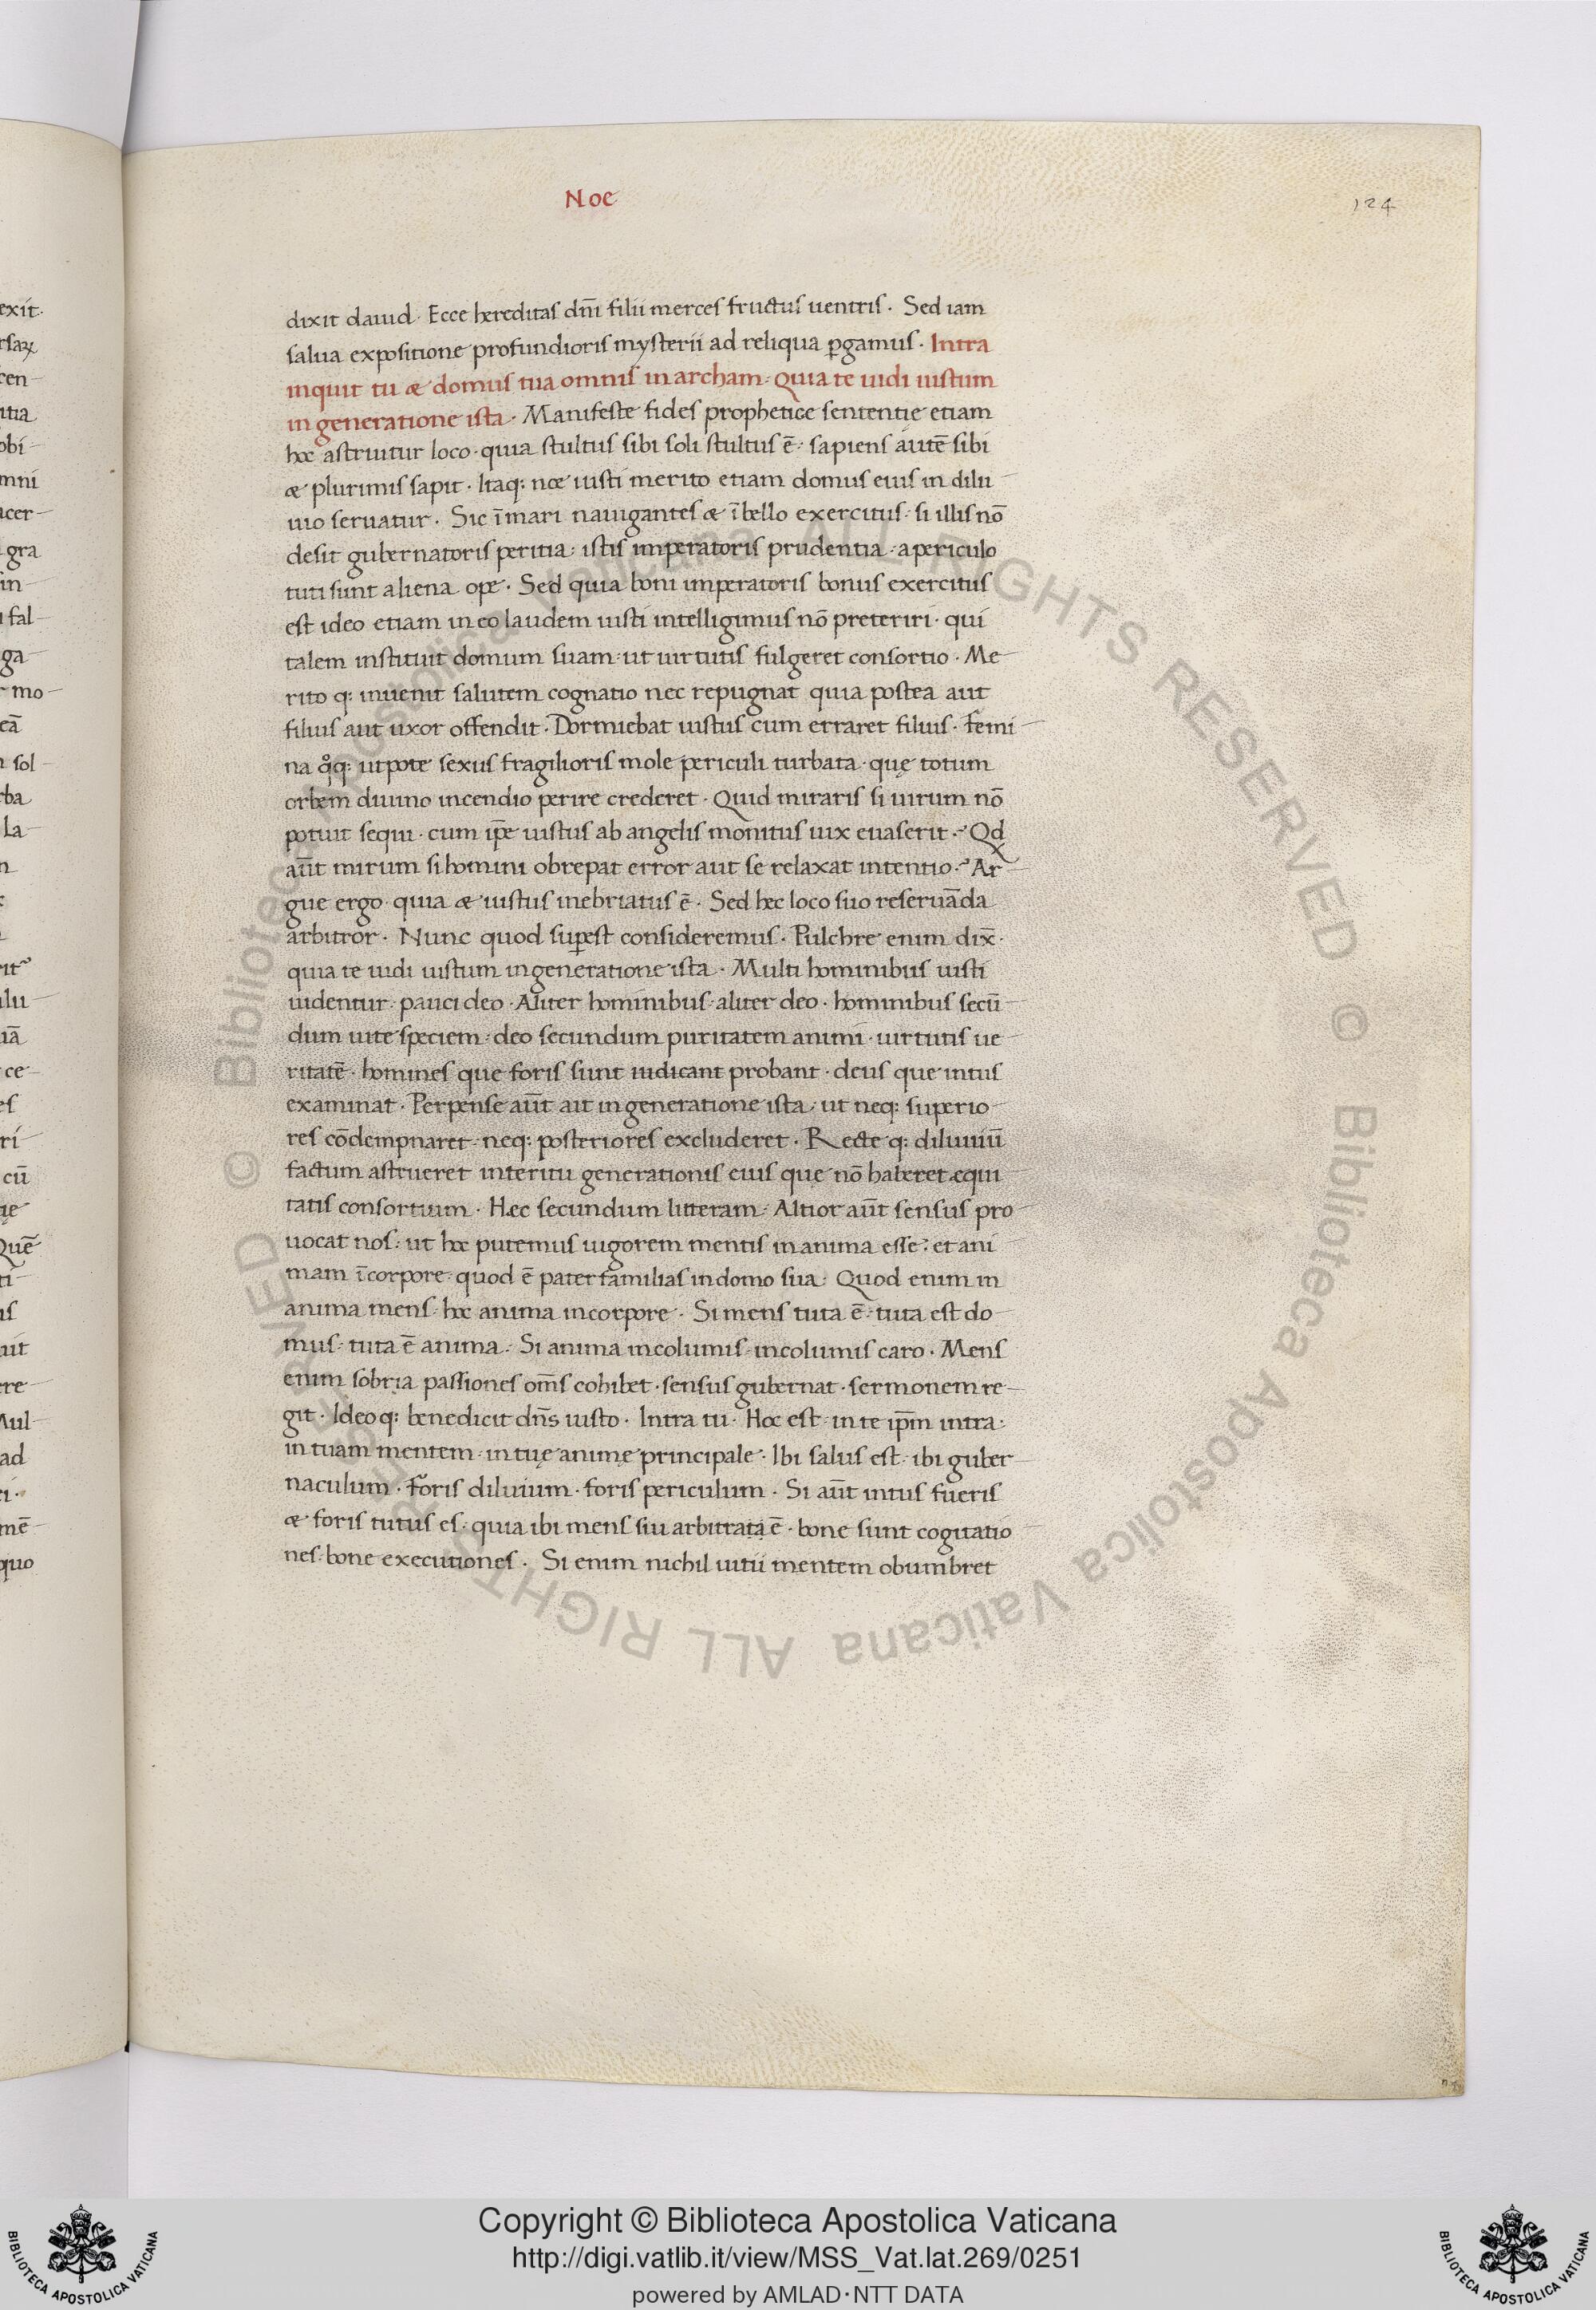 Noe
124
dixit dauid · Ecce hereditas dñi filii merces fructus uentris · Sed iam
salua expositione profundioris mysterii ad reliqua ꝑgamus · Intra
inquit tu & domus tua omnis in archam · Quia te uidi iustum
in generatione ista · Manifeste fides prophetice sententie etiam
hoc astruitur loco · quia stultus sibi soli stultus ē · sapiens autē sibi
& plurimis sapit · Itaq: noe iusti merito etiam domus eius in dilu
uio seruatur · Sic ī mari nauigantes & ī bello exercitus · si illis nō
desit gubernatoris peritia · istis imperatoris prudentia · a periculo
tuti sunt aliena ope · Sed quia boni imperatoris bonus exercitus
est ideo etiam in eo laudem iusti intelligimus nō preteriri · qui
talem instituit domum suam · ut uirtutis fulgeret consortio · Me
rito q: inuenit salutem cognatio nec repugnat quia postea aut
filius aut uxor offendit · Dormiebat iustus cum erraret filius · Femi
na qͦq: utpote sexus fragilioris mole periculi turbata · quę totum
orbem diuino incendio perire crederet · Quid miraris si uirum nō
potuit sequi · cum ip̄e iustus ab angelis monitus uix euaserit · Qd
aūt mirum si homini obrepat error aut se relaxat intentio · Ar
gue ergo quia & iustus inebriatus ē · Sed hec loco suo reseruāda
arbitror · Nunc quod suꝑest consideremus · Pulchre enim dix̄ ·
quia te uidi iustum in generatione ista · Multi hominibus iusti
uidentur · pauci deo · Aliter hominibus · aliter deo · hominibus secū
dum uite speciem · deo secundum puritatem animi · uirtutis ue
ritatē · homines que foris sunt iudicant probant · deus que intus
examinat · Perpense aūt ait in generatione ista · ut neq: superio
res cōdempnaret · neq: posteriores excluderet · Recte q: diluuiū
factum astrueret interitu generationis eius quę nō haberet æqui
tatis consortium · Hæc secundum litteram · Altior aūt sensus pro
uocat nos · ut hoc putemus uigorem mentis in anima esse · et ani
mam ī corpore · quod ē pater familias in domo sua · Quod enim in
anima mens · hoc anima in corpore · Si mens tuta ē · tuta est do
mus · tuta ē anima · Si anima incolumis · incolumis caro · Mens
enim sobria passiones om̄s cohibet · sensus gubernat · sermonem re
git · Ideo q: benedicit dn̄s iusto · Intra tu · Hoc est · in te ip̄m intra ·
in tuam mentem · in tuę animę principale · Ibi salus est · ibi guber
naculum · Foris diluium · foris periculum · Si aūt intus fueris
& foris tutus es · quia ibi mens sui arbitrata ē · bone sunt cogitatio
nes · bone executiones · Si enim nichil uitii mentem obumbret
© Biblioteca Apostolica Vaticana ALL RIGHTS RESERVED © Biblioteca Apostolica Vaticana ALL RIGHTS RESERVED
Copyright © Biblioteca Apostolica Vaticana
http://digi.vatlib.it/view/MSS_Vat.lat.269/0251
powered by AMLAD·NTT DATA
BIBLIOTECA APOSTOLICA VATICANA
BIBLIOTECA APOSTOLICA VATICANA